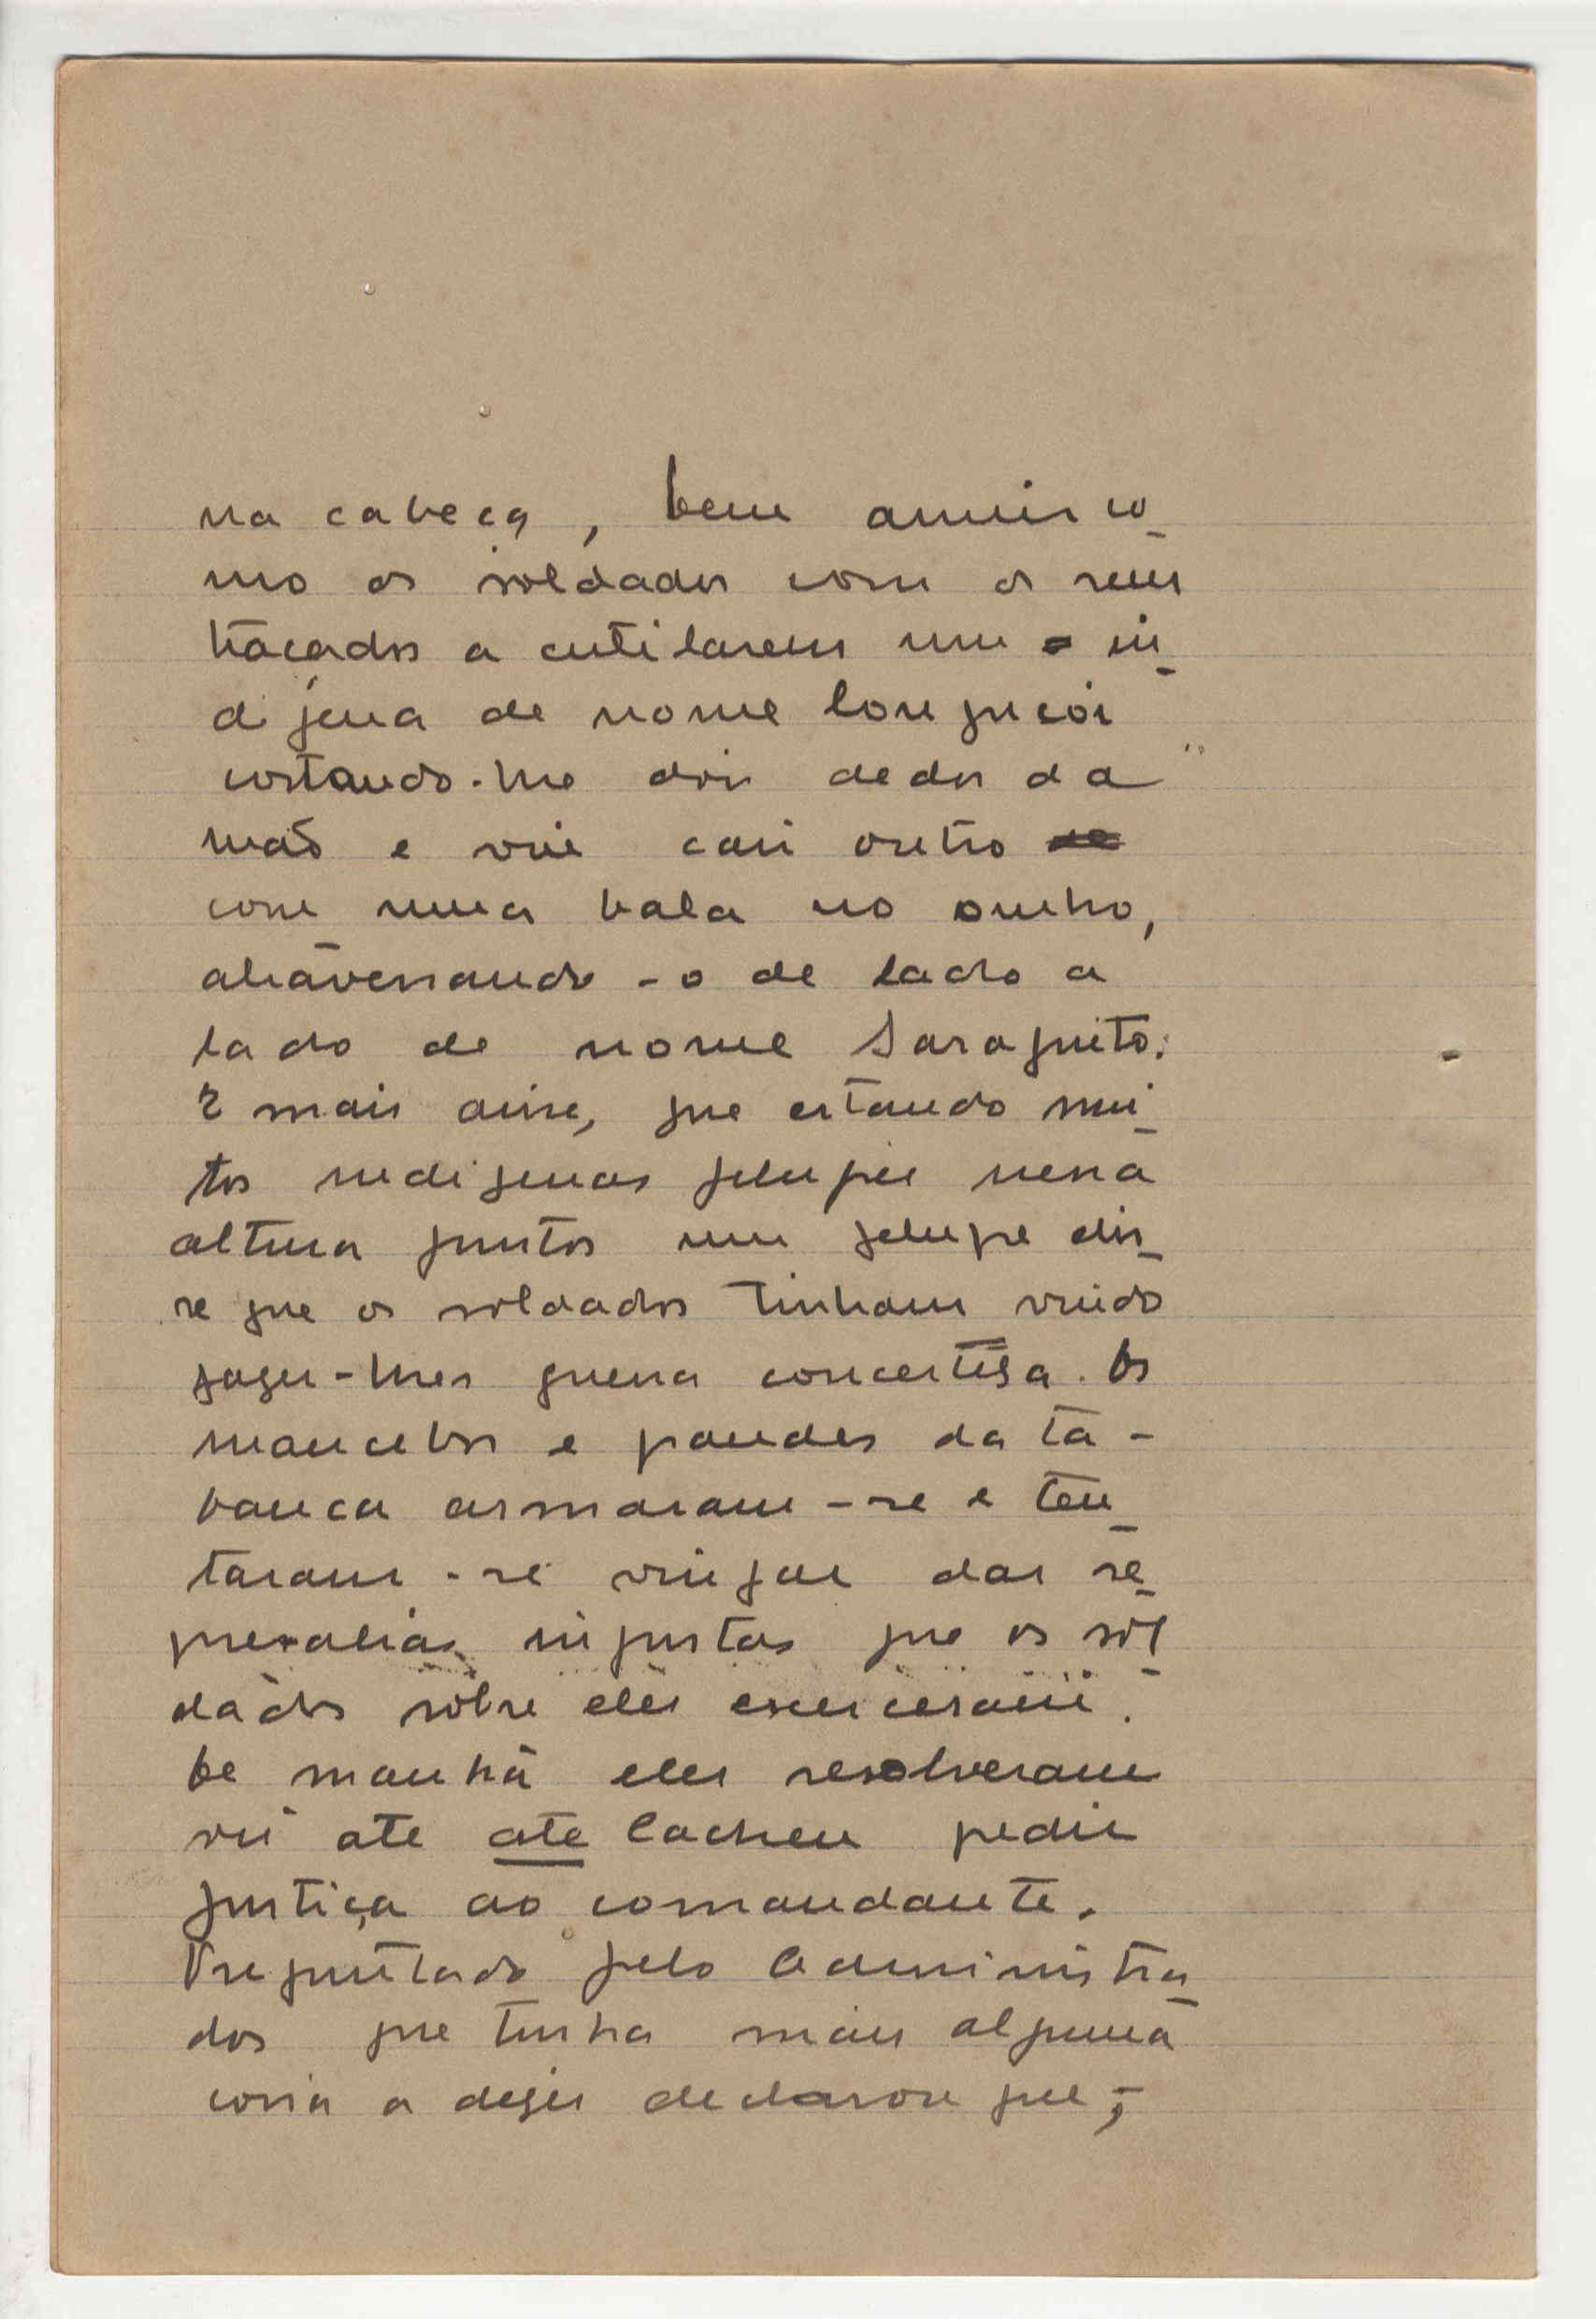 na cabeça, bem assim co
mo os soldados com os seus
traçados a cutilarem um in
digena de nome Congucói
cortando-lhe dois dedos da
mão e viu cair outro
com uma bala no ombro,
atravessando-o de lado a
lado de nome Saraquito.
E mais disse, que estando mui
tos indigenas felupes nessa
altura juntos um felupe dis
se que os soldados tinham vindo
fazer-lhes guerra concerteza. Os
mancebos e grandes da ta-
banca armaram-se e ten
taram-se vingar das re
presalias injustas que os sol
dados sôbre eles exerceram.
De manhã eles resolveram
vir ate ate Cacheu pedir
justiça ao comandante.
Preguntado pelo Administra
dor que tinha mais alguma
coisa a dizer declarou que,